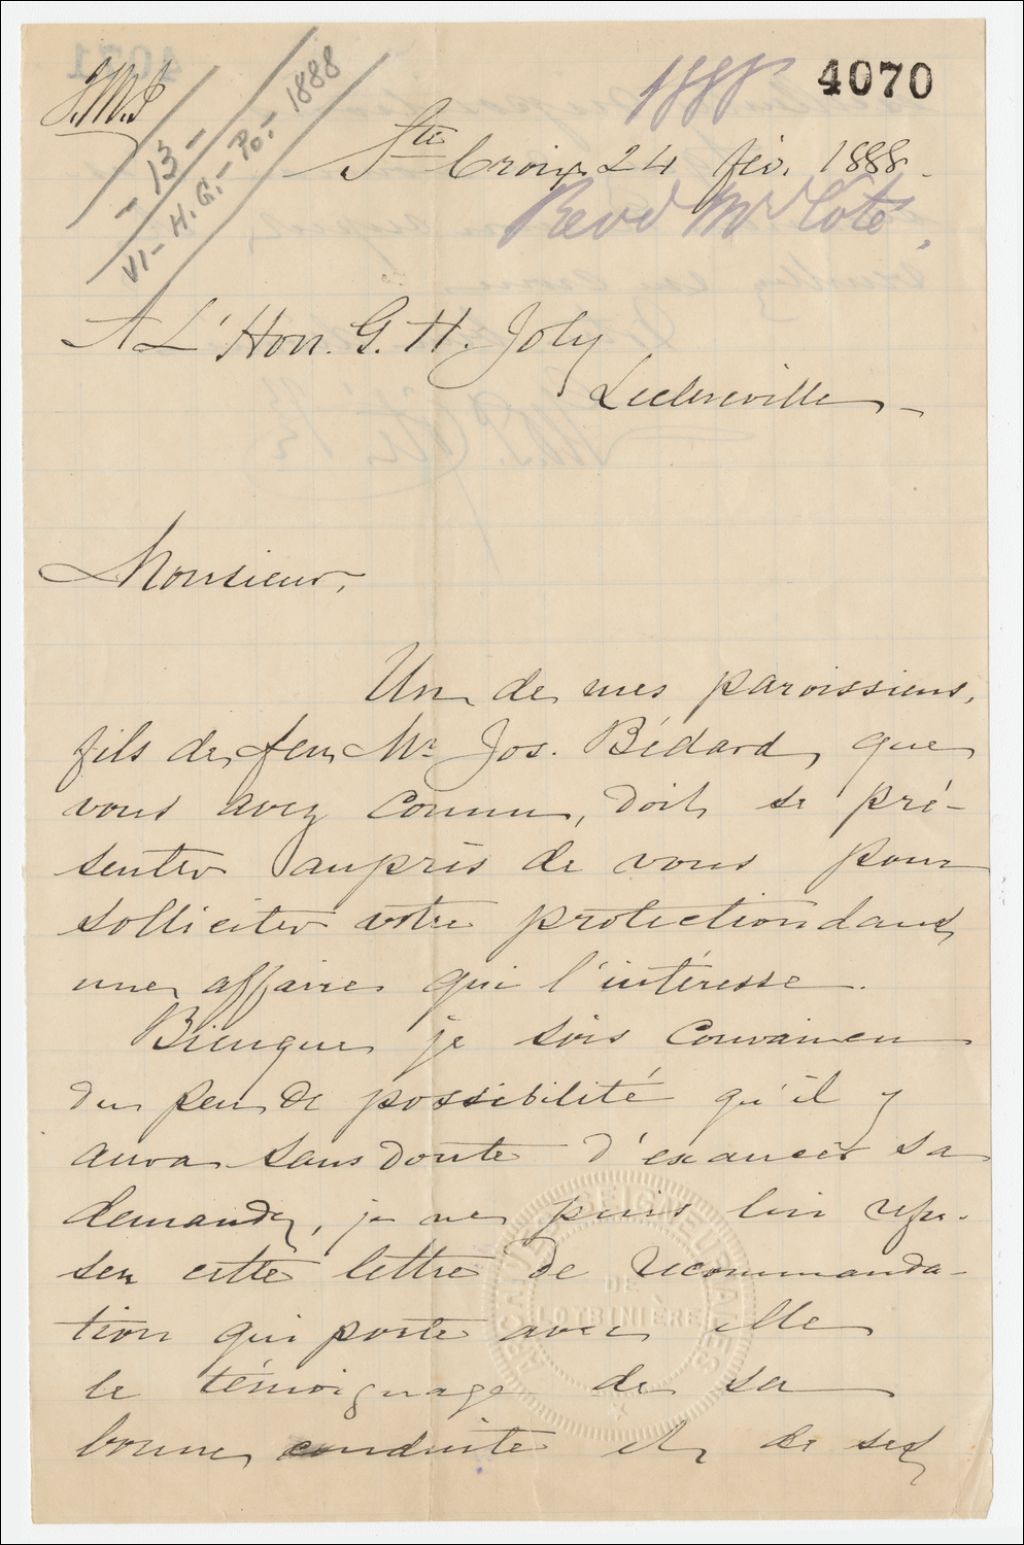 4070
1888
J.M.J.
- 13 -
VI - H. G. - Po. - 1888
Ste Croix 24 fév. 1888.
Revd Mr Côté,
A L'Hon. G. H. Joly
Leclercville
Monsieur,
Un de mes paroissiens,
fils de feu Mr Jos. Bédard, que
vous avez connu, doit se pré-
senter auprès de vous pour
solliciter votre protection dans
une affaire qui l'intéresse.
Bienque je sois convaincu
du peu de possibilité qu'il y
aura sans doute d'exaucer sa
demande, je ne puis lui refu-
ser cette lettre de recommanda-
tion qui porte avec elle
le témoignage de sa
bonne conduite et de ses
ARCHIVES SEIGNEURIALES
DE
LOTBINIÈRE